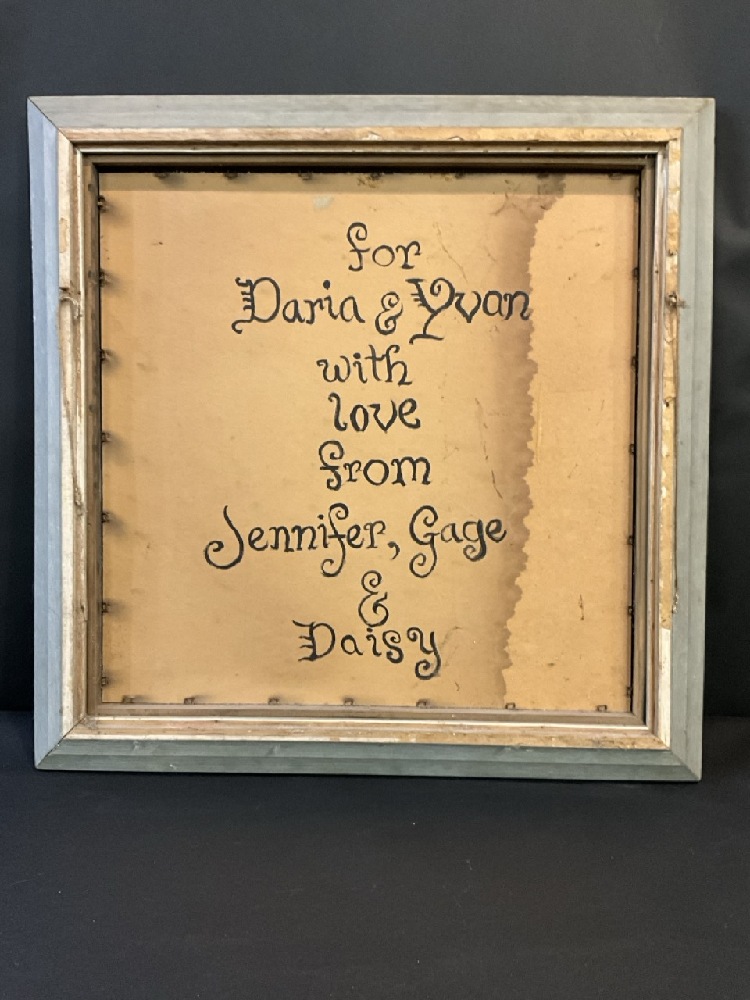 for
Daria & Yvan
with
love
from
Jennifer, Gage
&
Daisy